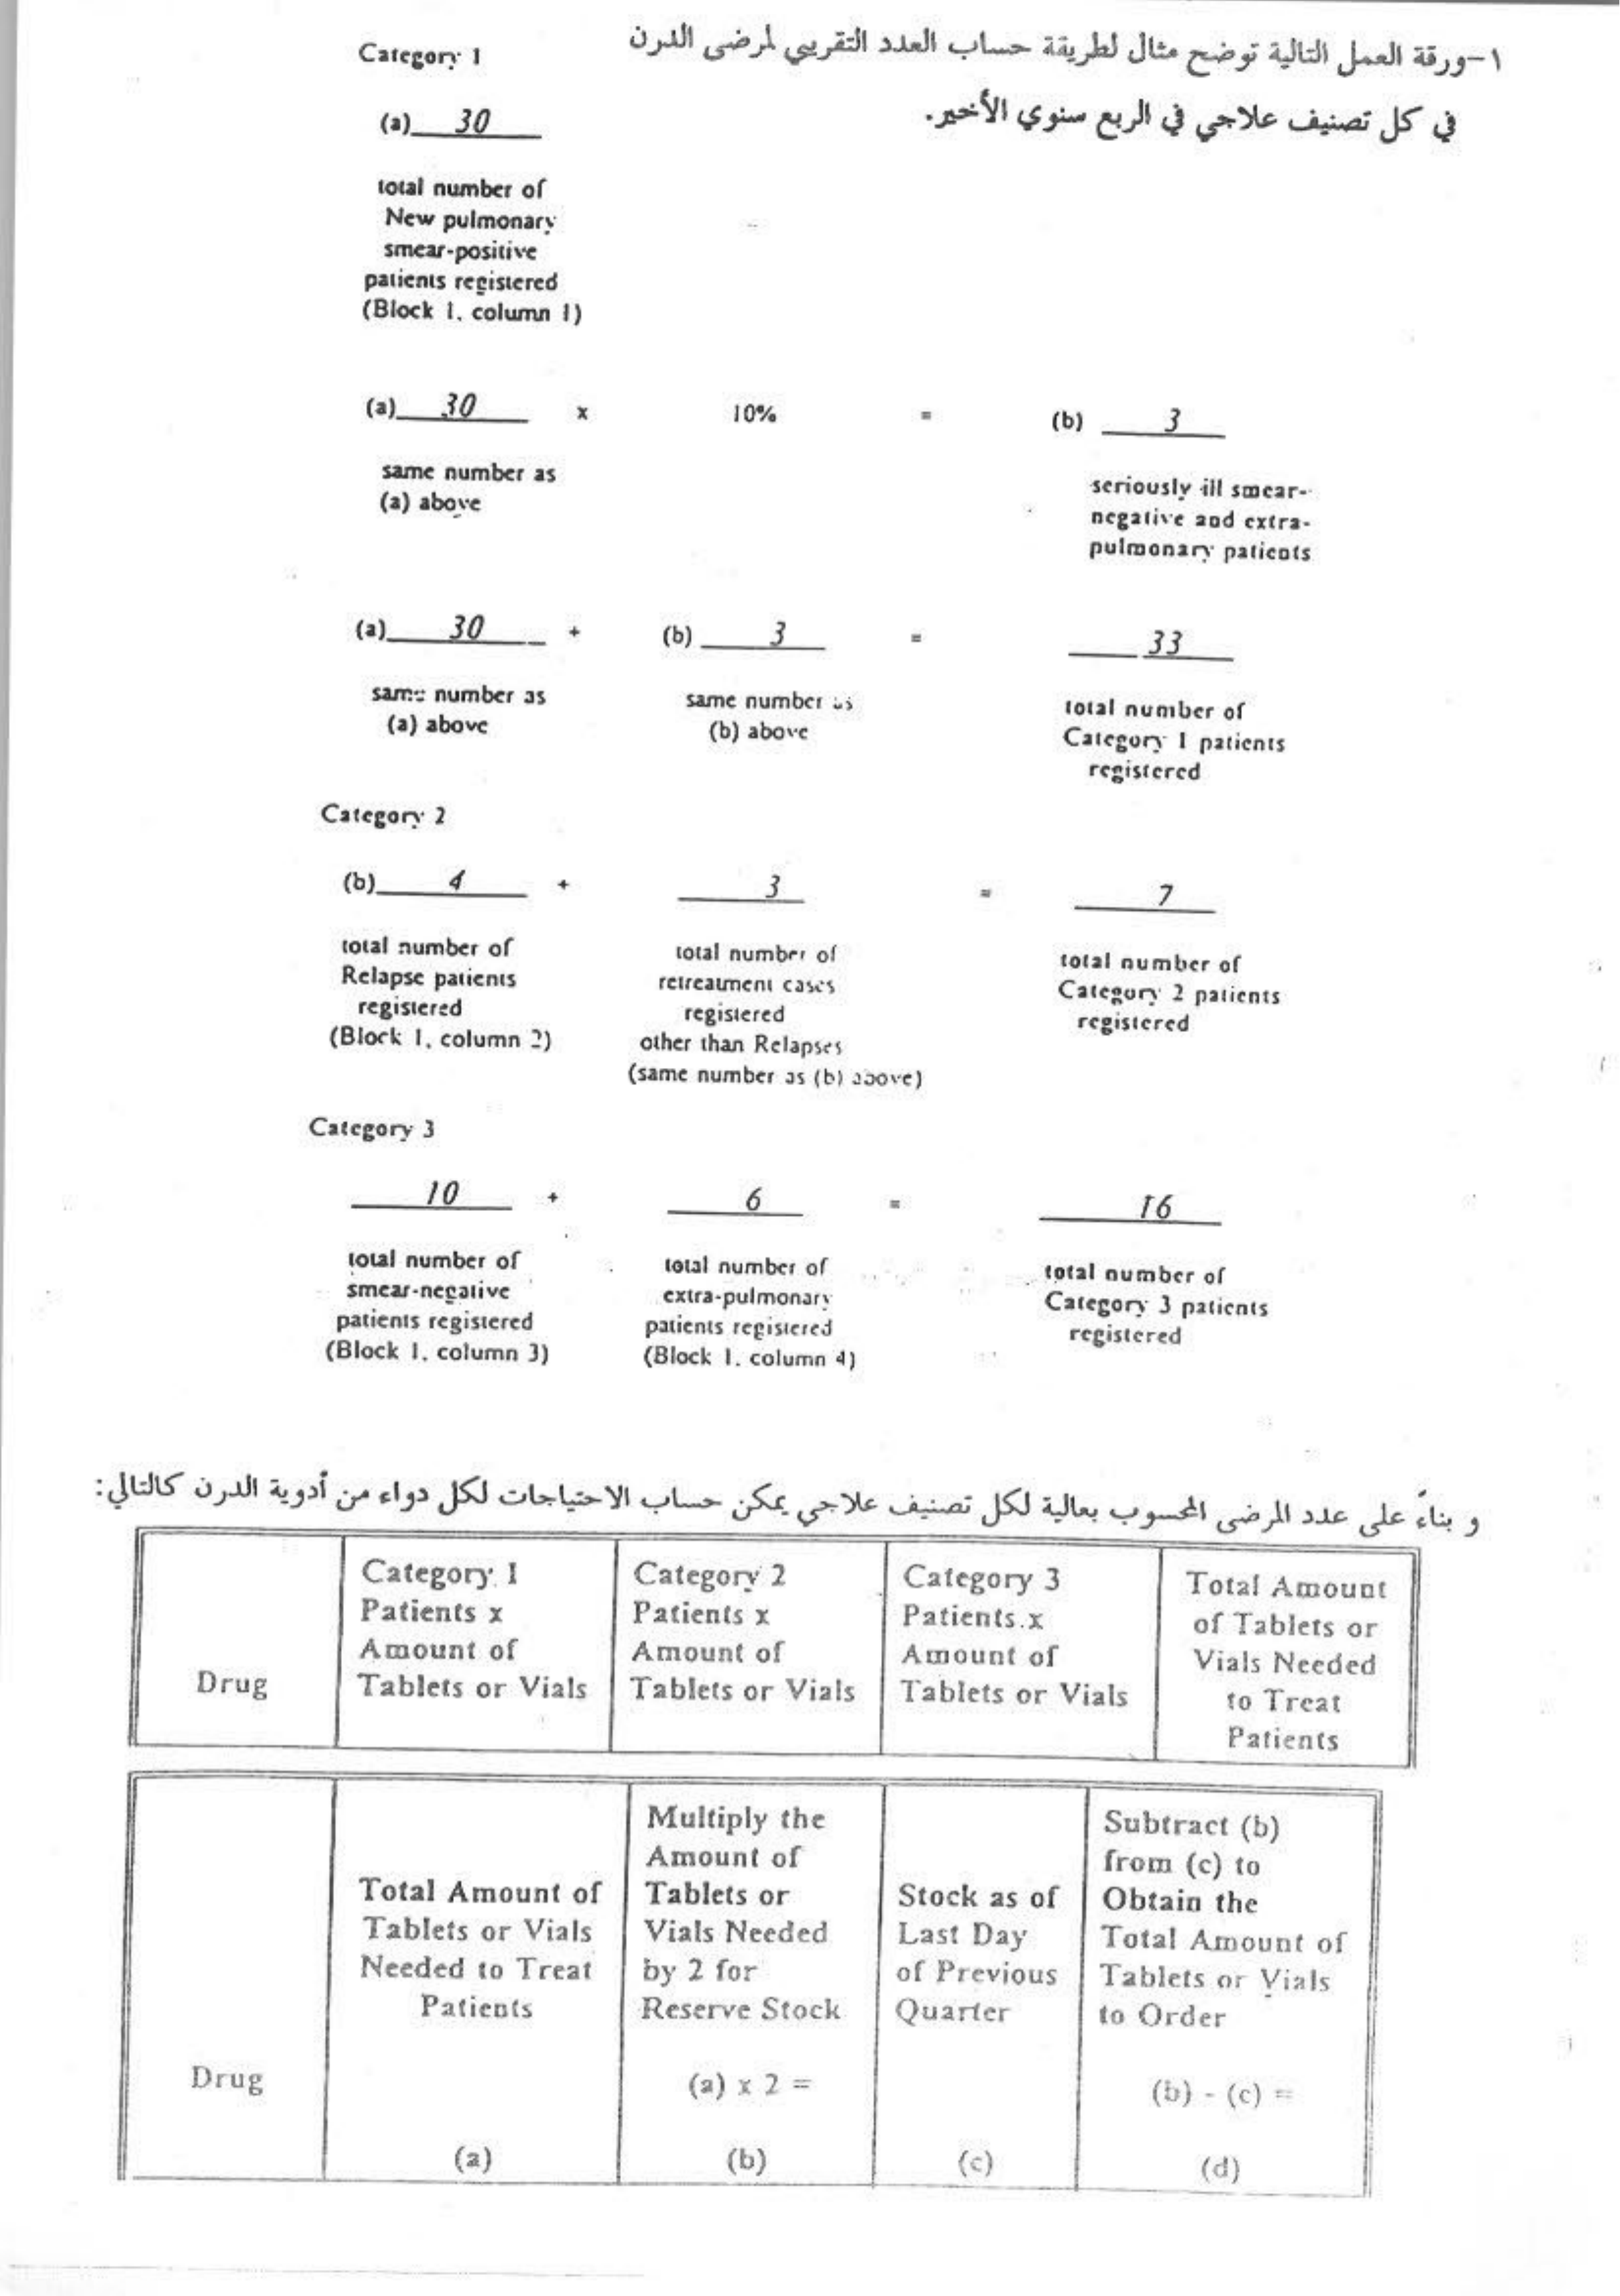 ١-ورقة العمل التالية توضح مثال لطريقة حساب العدد التقريبي لمرضى الدرن
في كل تصنيف علاجي في الربع سنوي الأخير.
Category 1
(a) 30
total number of
New pulmonary
smear-positive
patients registered
(Block 1. column 1)
(a) 30 x 10% = (b) 3
same number as
(a) above
seriously ill smear-
negative and extra-
pulmonary patients
(a) 30 + (b) 3 = 33
same number as
(a) above
same number as
(b) above
total number of
Category 1 patients
registered
Category 2
(b) 4 + 3 = 7
total number of
Relapse patients
registered
(Block 1, column 2)
total number of
retreatment cases
registered
other than Relapses
(same number as (b) above)
total number of
Category 2 patients
registered
Category 3
10 + 6 = 16
total number of
smear-negative
patients registered
(Block 1. column 3)
total number of
extra-pulmonary
patients registered
(Block 1. column 4)
total number of
Category 3 patients
registered
و بناءً على عدد المرضى المحسوب بعالية لكل تصنيف علاجي يمكن حساب الاحتياجات لكل دواء من أدوية الدرن كالتالي:
Drug
Category 1
Patients x
Amount of
Tablets or Vials
Category 2
Patients x
Amount of
Tablets or Vials
Category 3
Patients.x
Amount of
Tablets or Vials
Total Amount
of Tablets or
Vials Needed
to Treat
Patients
Drug
Total Amount of
Tablets or Vials
Needed to Treat
Patients
(a)
Multiply the
Amount of
Tablets or
Vials Needed
by 2 for
Reserve Stock
(a) x 2 =
(b)
Stock as of
Last Day
of Previous
Quarter
(c)
Subtract (b)
from (c) to
Obtain the
Total Amount of
Tablets or Vials
to Order
(b) - (c) =
(d)